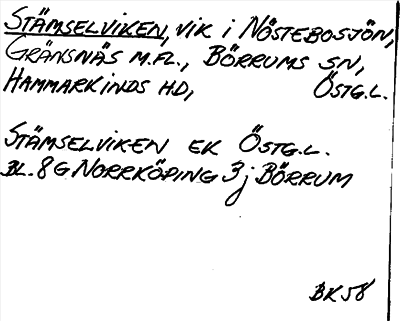 STÄMSELVIKEN, VIK I NÖSTEBOSJÖN,
GRÄNSNÄS M.FL., BÖRRUMS SN,
HAMMARKINDS HD, ÖSTG.L.
STÄMSELVIKEN EK ÖSTG.L.
BL. 8 G NORRKÖPING 3j BÖRRUM
BK58